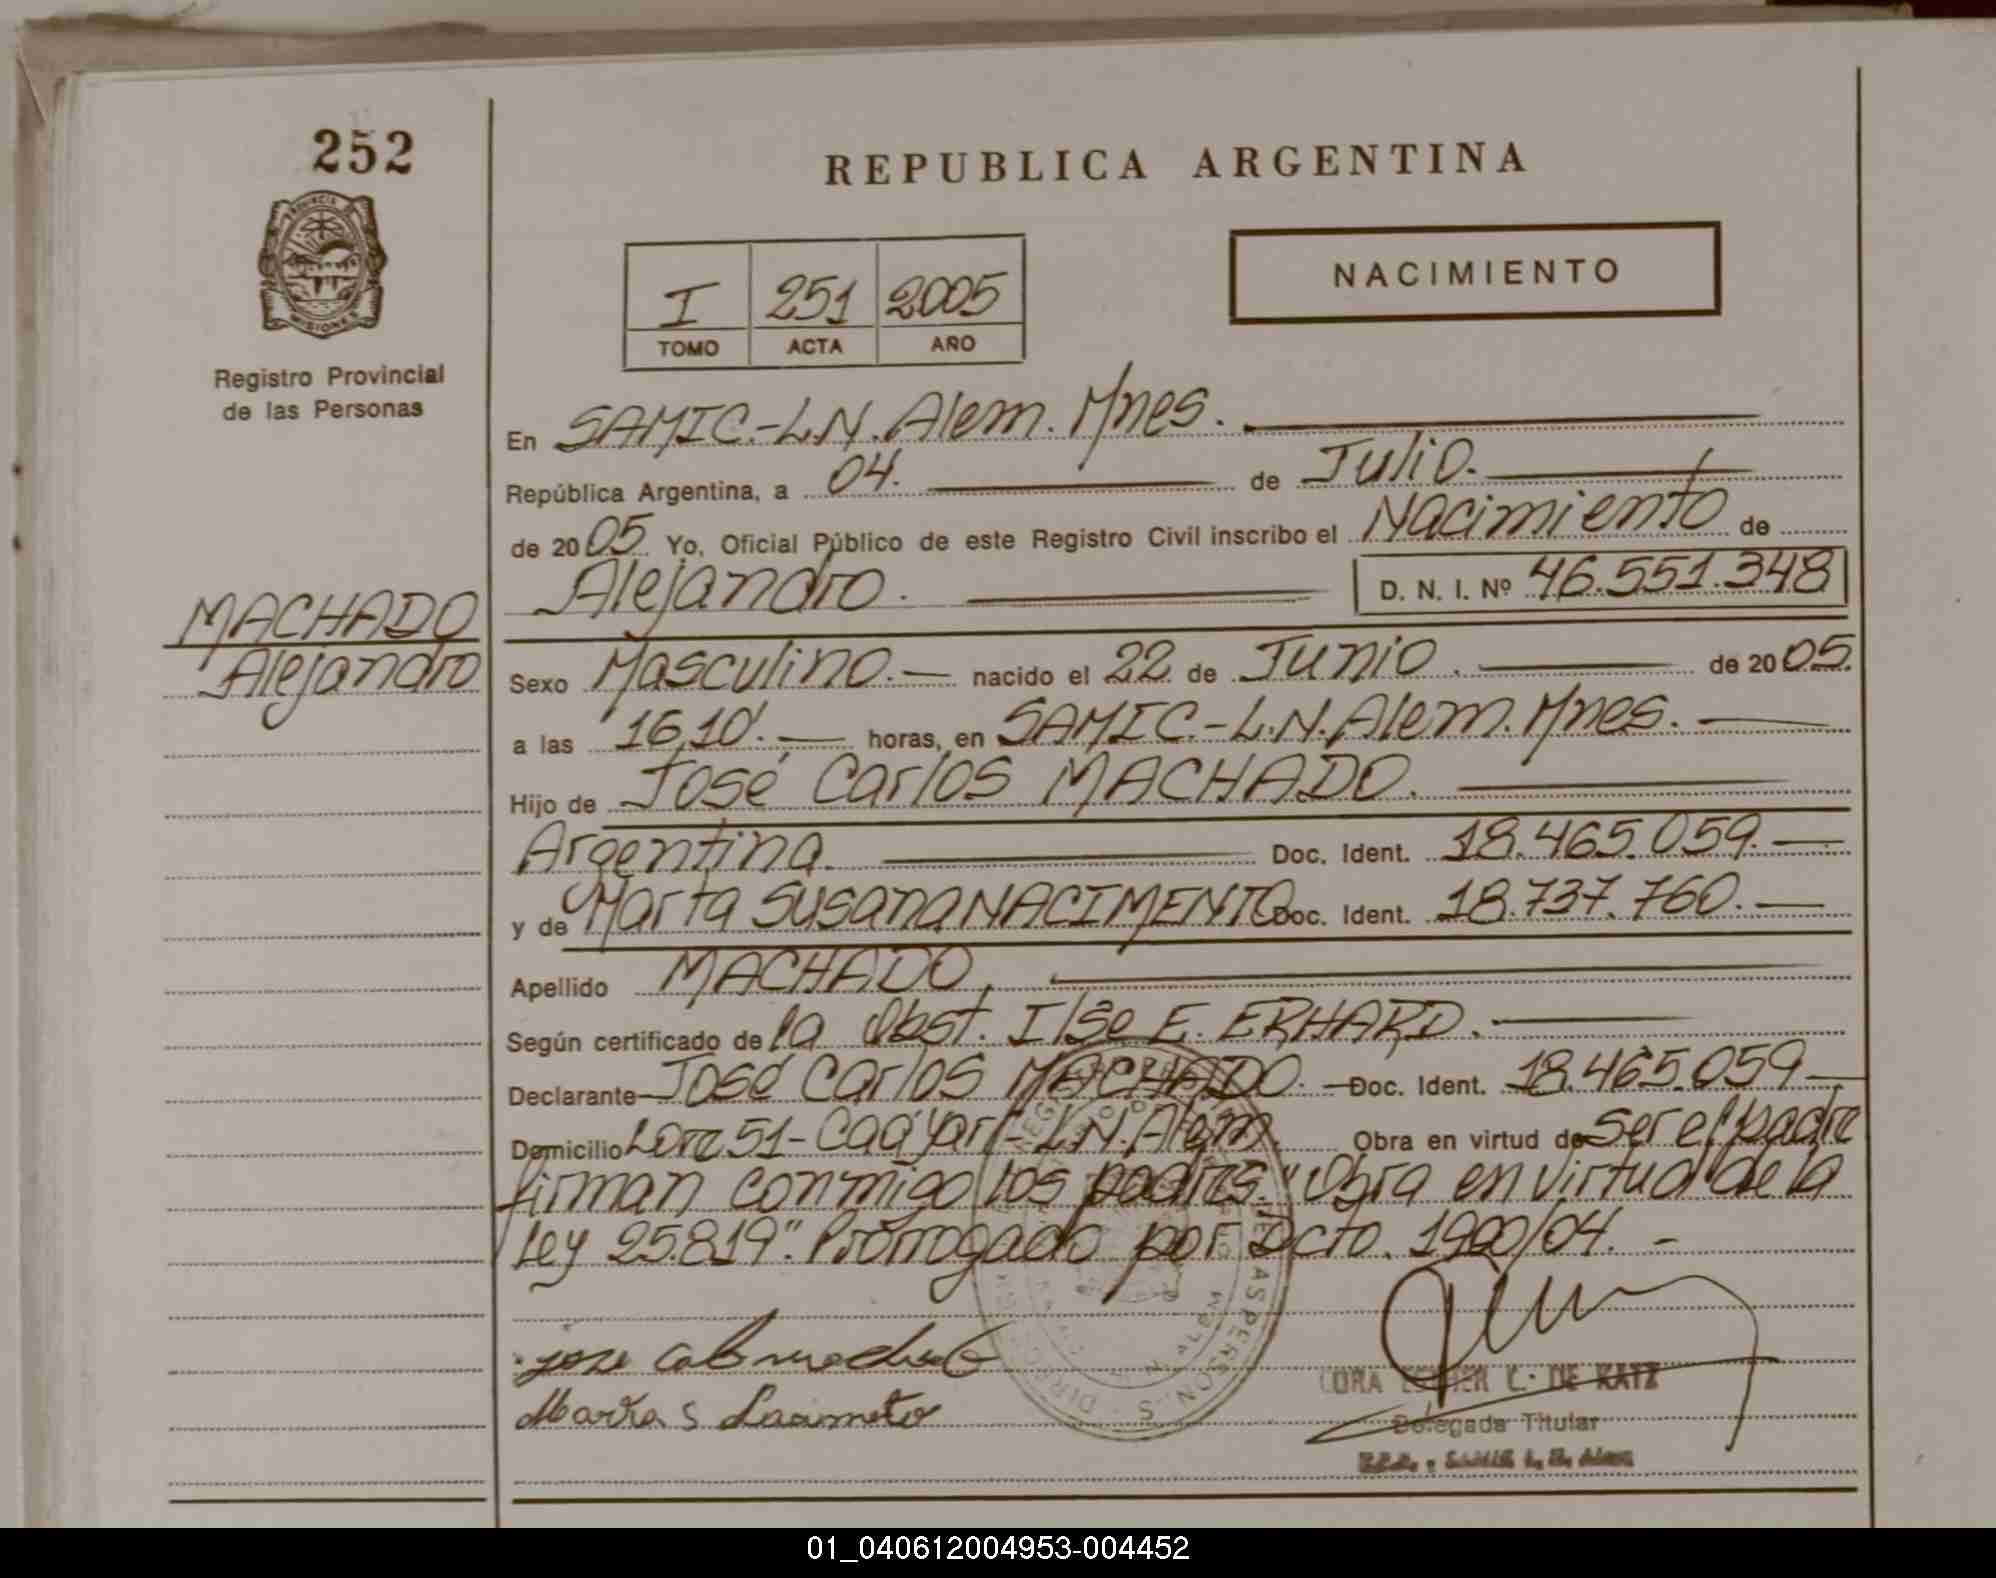 252
REPUBLICA ARGENTINA
PROVINCIA DE
MISIONES
Registro Provincial
de las Personas
I 251 2005
TOMO ACTA AÑO
NACIMIENTO
En SAMIC.-L.N.Alem. Mnes.
República Argentina, a 04. de Julio.
de 2005 Yo, Oficial Público de este Registro Civil inscribo el Nacimiento de
Alejandro. D. N. I. Nº 46.551.348
MACHADO
Alejandro
Sexo Masculino.- nacido el 22 de Junio. de 2005.
a las 16,10'.- horas, en SAMIC.-L.N.Alem. Mnes.-
Hijo de José Carlos MACHADO.
Argentina. Doc. Ident. 18.465.059.-
y de Marta Susana NACIMENTO Doc. Ident. 18.737.760.-
Apellido MACHADO.
Según certificado de la Obst. Ilse E. ERHARD.
Declarante José Carlos MACHADO.- Doc. Ident. 18.465.059-
Domicilio 51-Caá Yarí-L.N.Alem. Obra en virtud de ser el padre
firman conmigo los padres. "Obra en virtud de la
Ley 25.819". Prorrogado por Dcto. 1900/04.-
Marta S
ESTHER C. DE KATZ
Delegada Titular
01_040612004953-004452